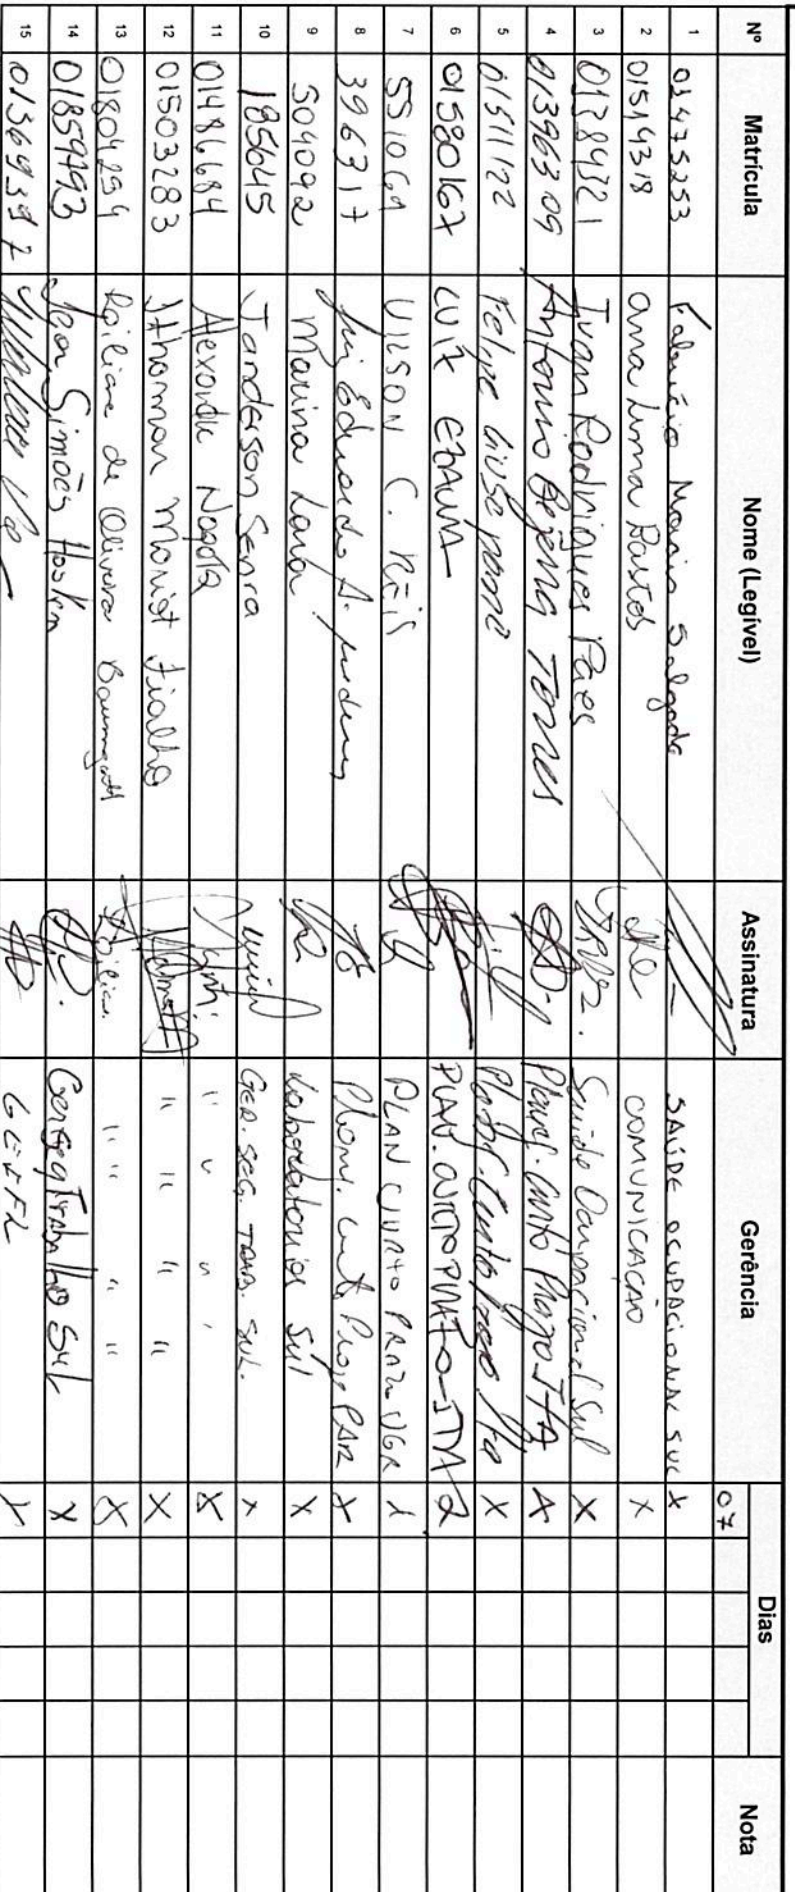 Nº Matrícula Nome (Legível) Assinatura Gerência Dias Nota
07
1 01475253 Fabrício Morais Salgado SAÚDE OCUPACIONAL SUL X
2 01514318 Ana Luma Bastos COMUNICAÇÃO X
3 01389321 Ivan Rodrigues Paes Saúde Ocupacional Sul X
4 01396309 Antonio Torres Planej. Curto Prazo ITA X
5 01511122 Felipe Giuseppone Planej. Curto Prazo Ita X
6 0158016X LUIX PLAN. CURTO PRAZO-ITA
7 551069 UILSON C. REIS PLAN CURTO PRAZO VGR X
8 396317 Luiz Eduardo A. Curto Prazo X
9 504092 Marina Lara Laboratorios Sul X
10 185645 Janderson Senra GER. SEG. TRAB. SUL. X
11 01486684 Alexandre " " " ' X
12 01503283 Fialho " " " " X
13 01804254 de Oliveira " " " " X
14 01859493 Jean Simões GerSegTrabalho Sul X
15 01369397 X